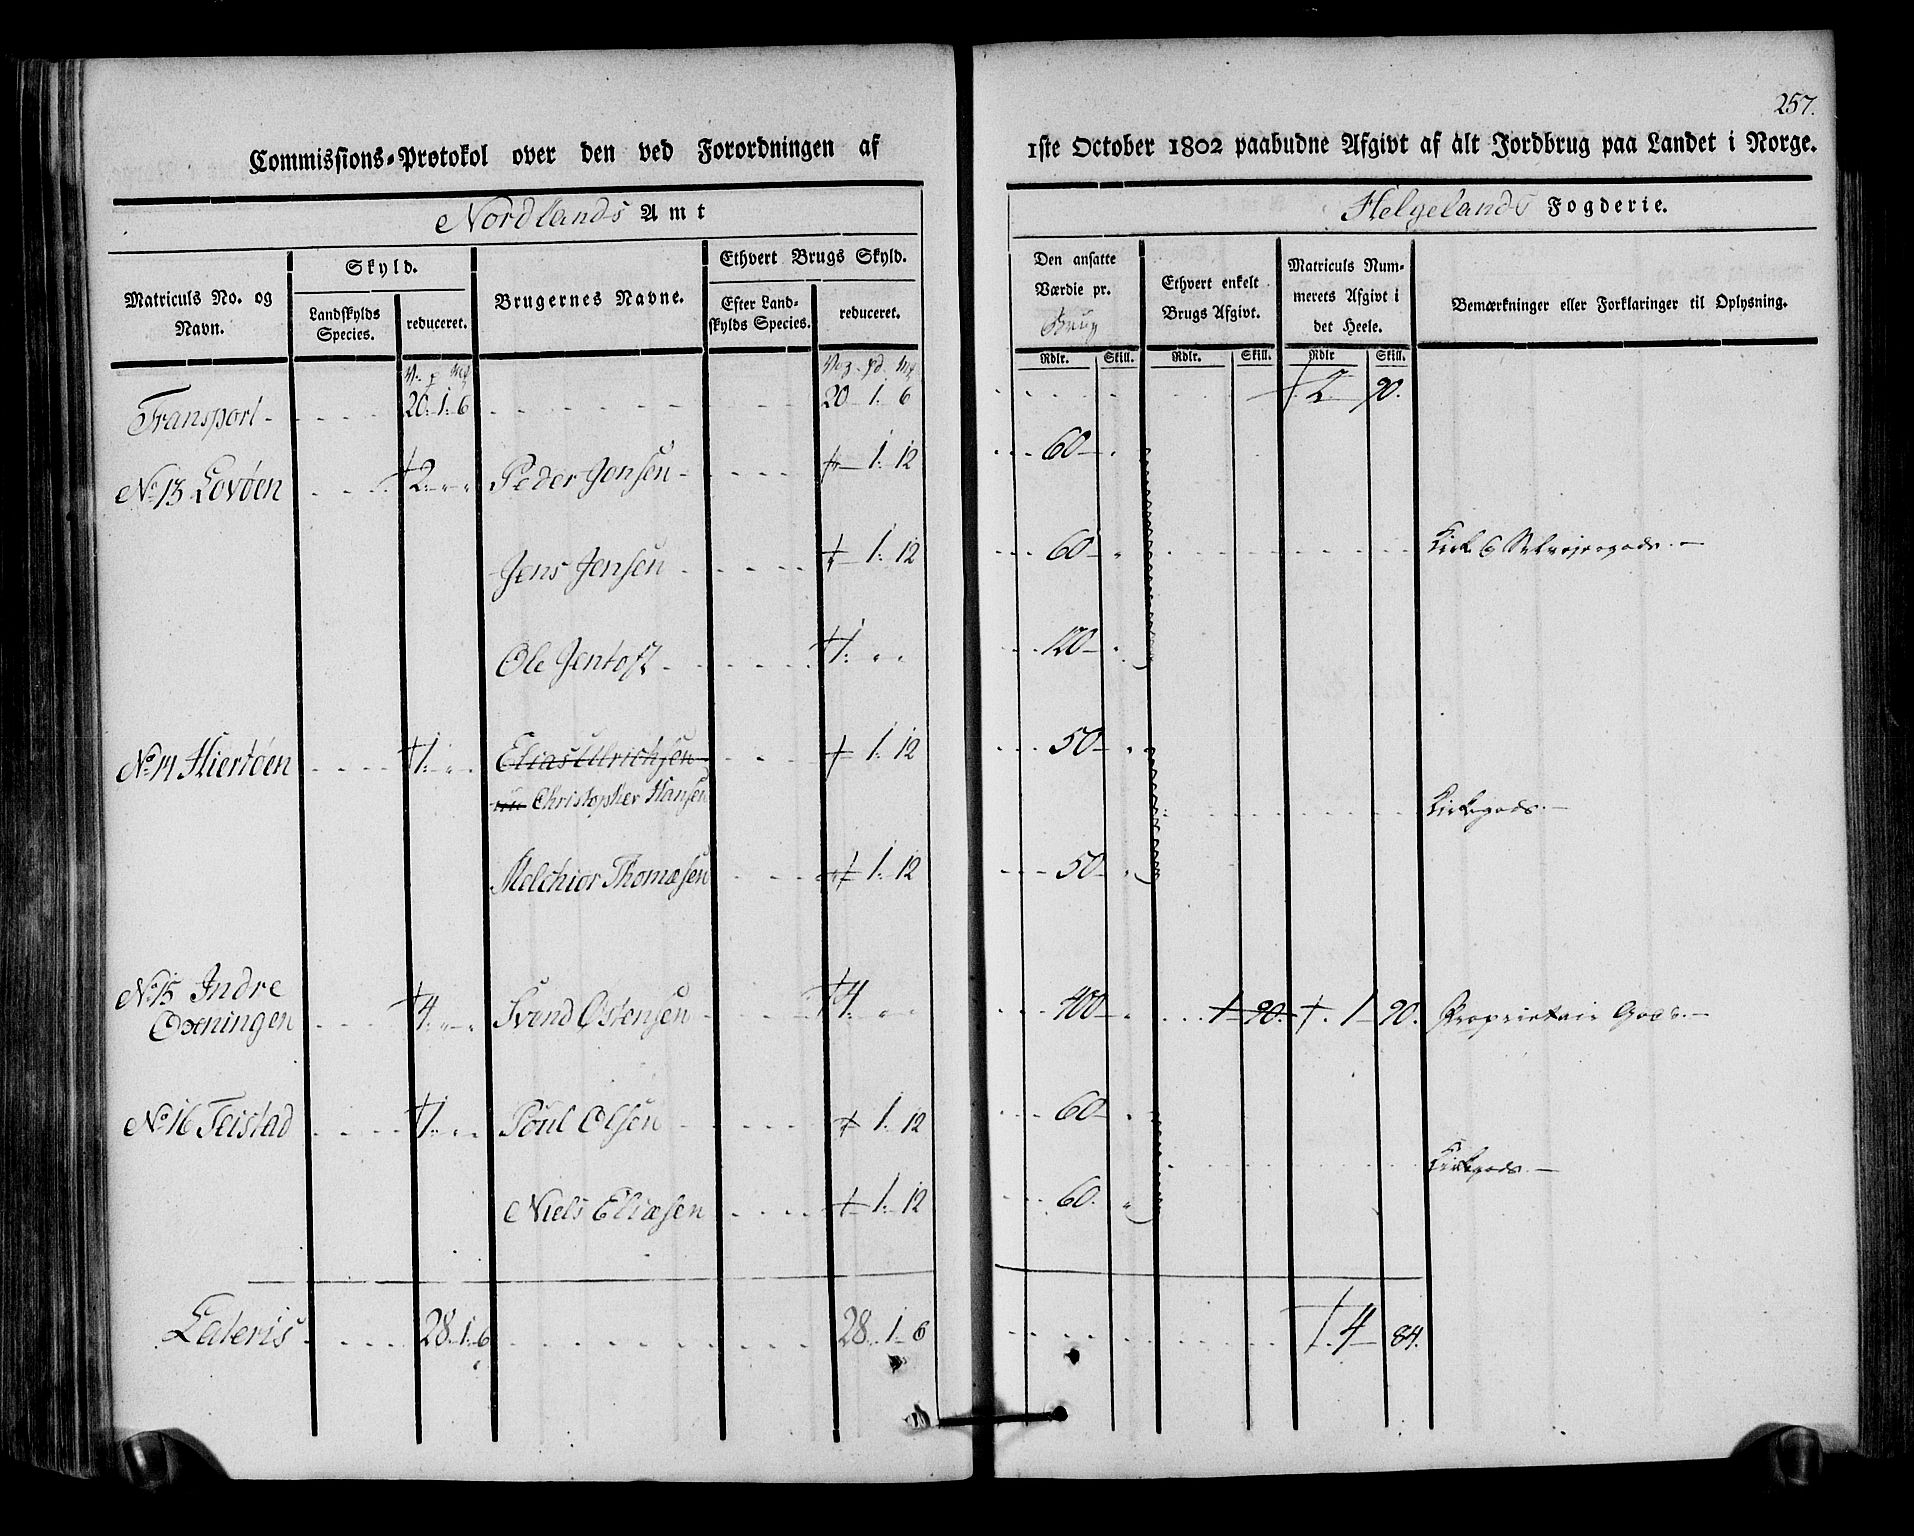 257.
Commissions-Protokol over den ved Forordningen af 1ste October 1802 paabudne Afgivt af alt Jordbrug paa Landet i Norge.
Nordlands Amt
Helgelands Fogderie.
Matriculs No. og Navn.
Skyld.
Landskylds Species.
reduceret.
Brugernes Navne.
Ethvert Brugs Skyld.
Efter Landskylds Species.
reduceret.
Den ansatte Værdie pr. Brug
Rdlr. Skill.
Ethvert enkelt Brugs Afgivt.
Rdlr. Skill.
Matriculs Nummerets Afgivt i det Heele.
Rdlr Skill.
Bemærkninger eller Forklaringer til Oplysning.
V. p Mk Vog. pd. Mk
Transport 20. 1. 6 20 1. 6 2 90.
No 13 Lovøen 2 Peder Jensen 1. 12 60
Jens Jensen 1. 12 60
Ole Jentoft 1. 120
No 14 Hiertøen 1. Elias Ulrichsen 1. 12 50
Christopher Hansen
Kirkegods.
Melchior Thomæsen 1. 12 50
No 15 Indre
Qvæningen 4. Svend Østensen 4. 400 1 90. 1 90. Proprietair Gods.
No 16 Feistad 1. Poul Olsen 1. 12 60
Kirkegods.
Niels Eliæsen 1. 12 60.
Lateris 28. 1. 6 28. 1 6 4 84.